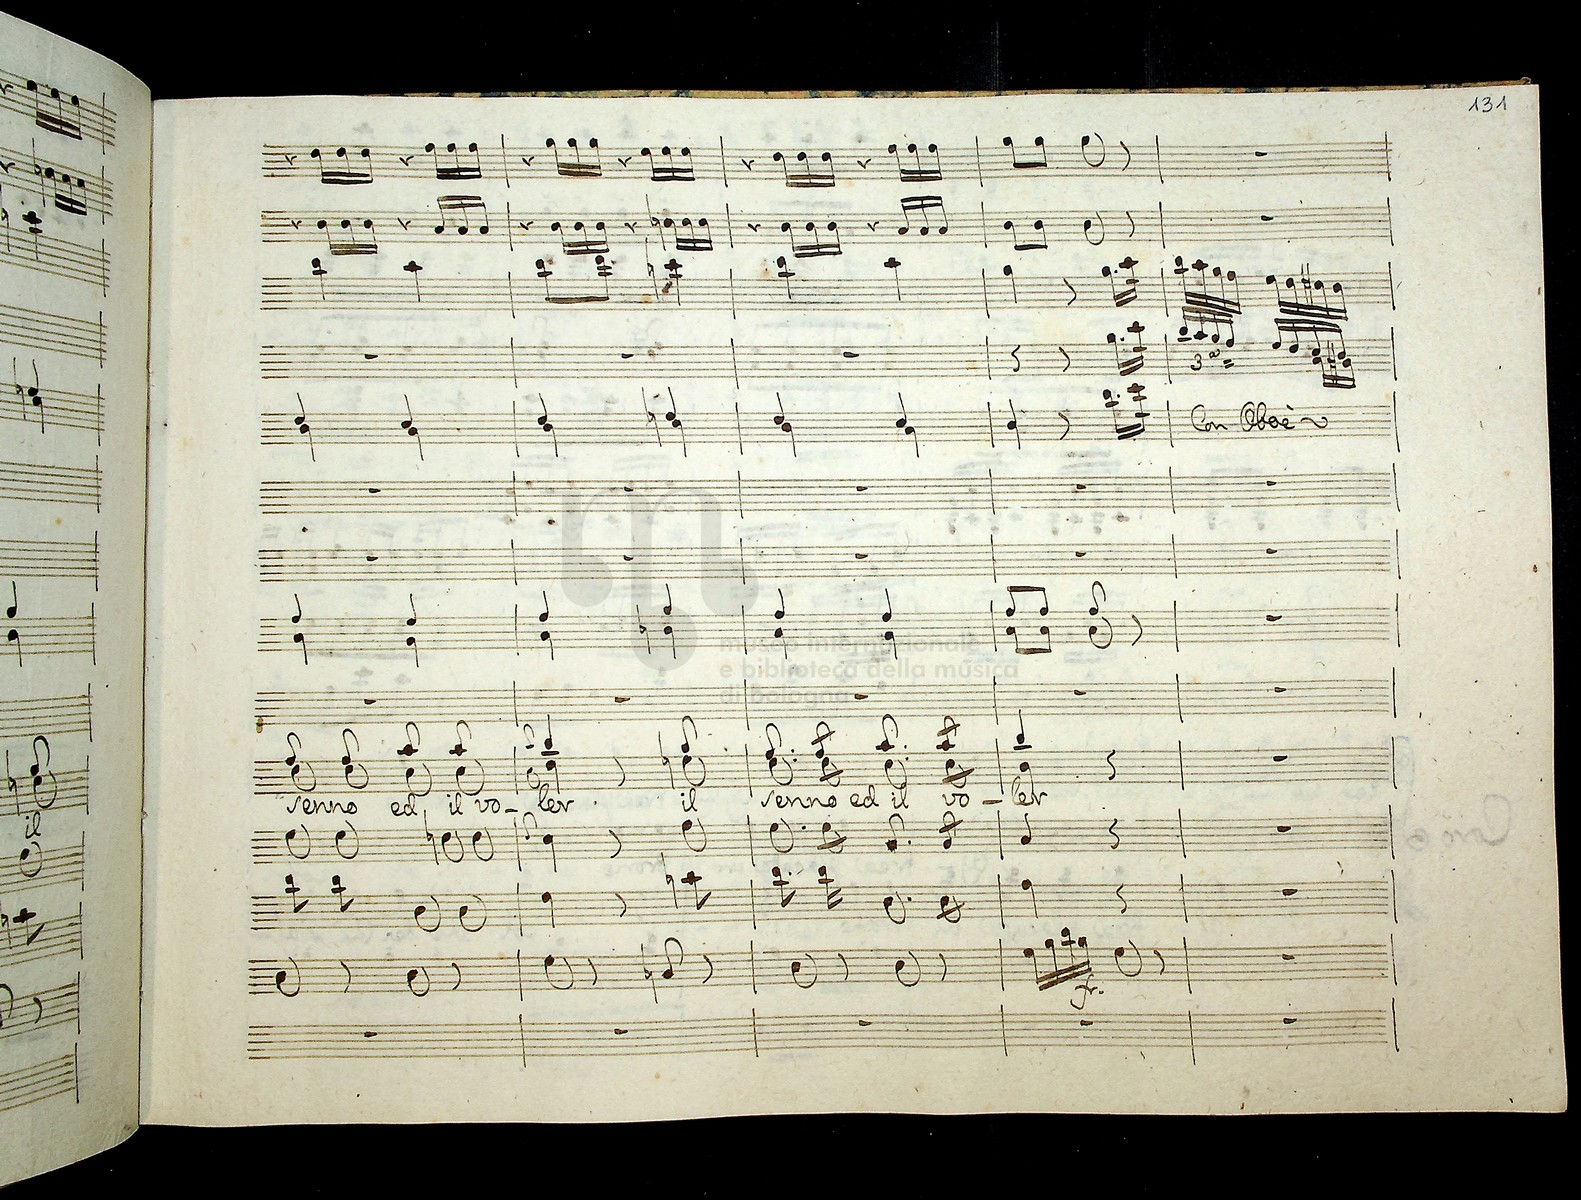 131
3ª
Con Oboè
museo internazionale
e biblioteca della musica
di bologna
senno ed il vo_ler il senno ed il vo_ler
il
fr.